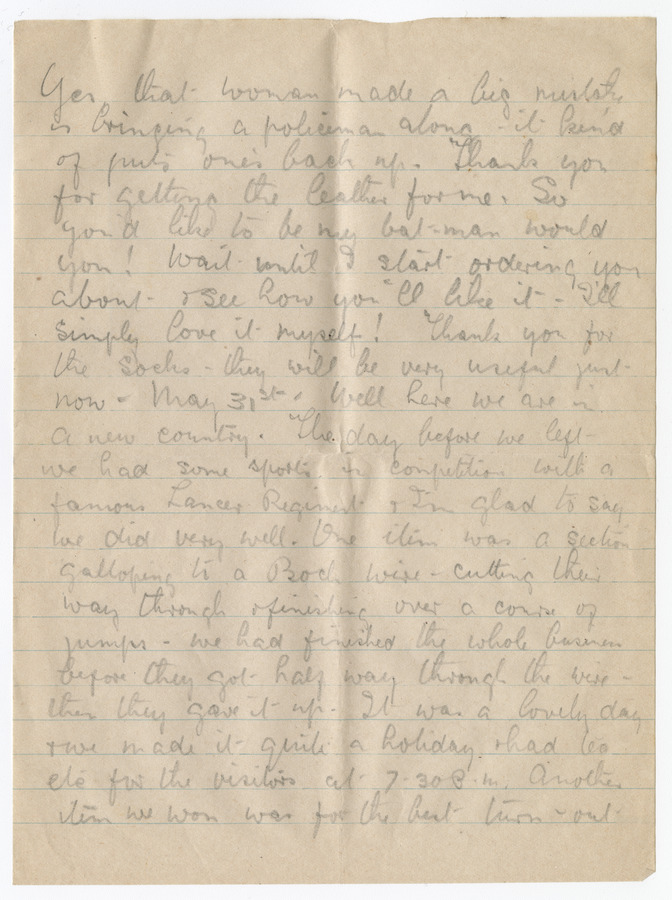 Yes, that woman made a big mistake
in bringing a policeman along - it kind
of puts one's back up. Thank you
for getting the leather for me. So
you'd like to be my bat-man would
you! Wait until I start ordering you
about & see how you'll like it - I'll
simply love it myself! Thank you for
the socks - they will be very useful just
now - May 31st. Well here we are in
a new country. The day before we left
we had some sports in competition with a
famous Lancer Regiment & I'm glad to say
we did very well. One item was a section
galloping to a Boch wire - cutting their
way through & finishing over a course of
jumps - we had finished the whole business
before they got half way through the wire -
then they gave it up. It was a lovely day
& we made it quite a holiday. & had tea
etc for the visitors at 7-30 P.m. Another
item we won was for the best turn-out